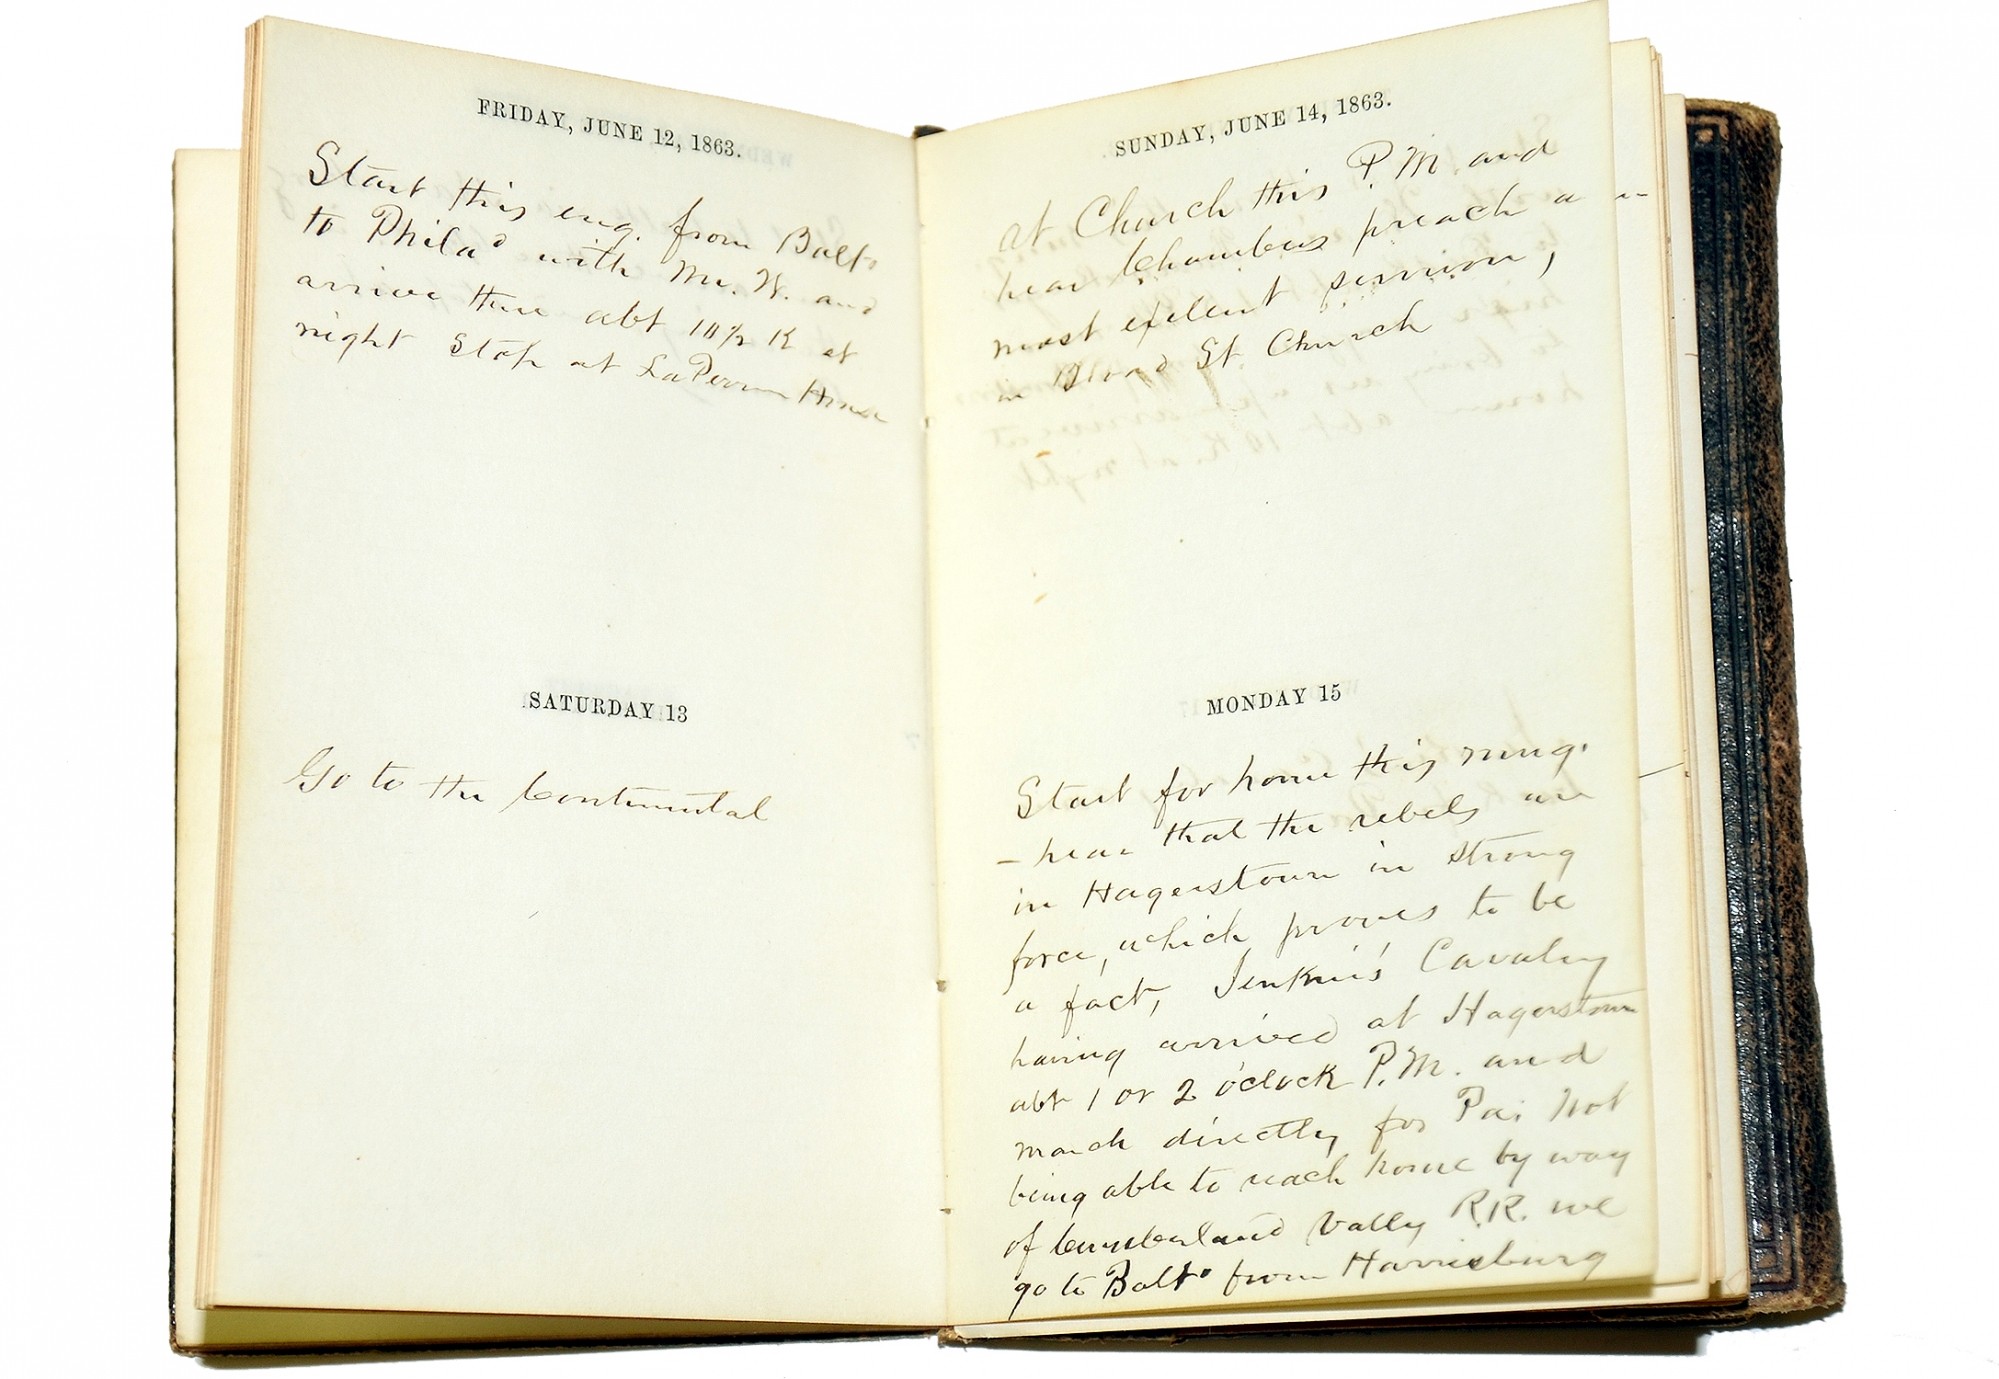 FRIDAY, JUNE 12, 1863.
Start this eng. from Balto
to Philad with Mr. W. and
arrive there abt 11 1/2 K at
night Stop at La Pierre House
SATURDAY 13
Go to the Continental
SUNDAY, JUNE 14, 1863.
at Church this P.M. and
hear Chambers preach a
most exelent sermion,
in Broad St. Church
MONDAY 15
Start for home this mng.
– hear that the rebels are
in Hagerstown in strong
force, which proves to be
a fact, Jenkins' Cavalry
having arrived at Hagerstown
abt 1 or 2 o'clock P.M. and
march directly for Pa; Not
being able to reach home by way
of Cumberland Vally R.R. we
go to Balto from Harrisburg